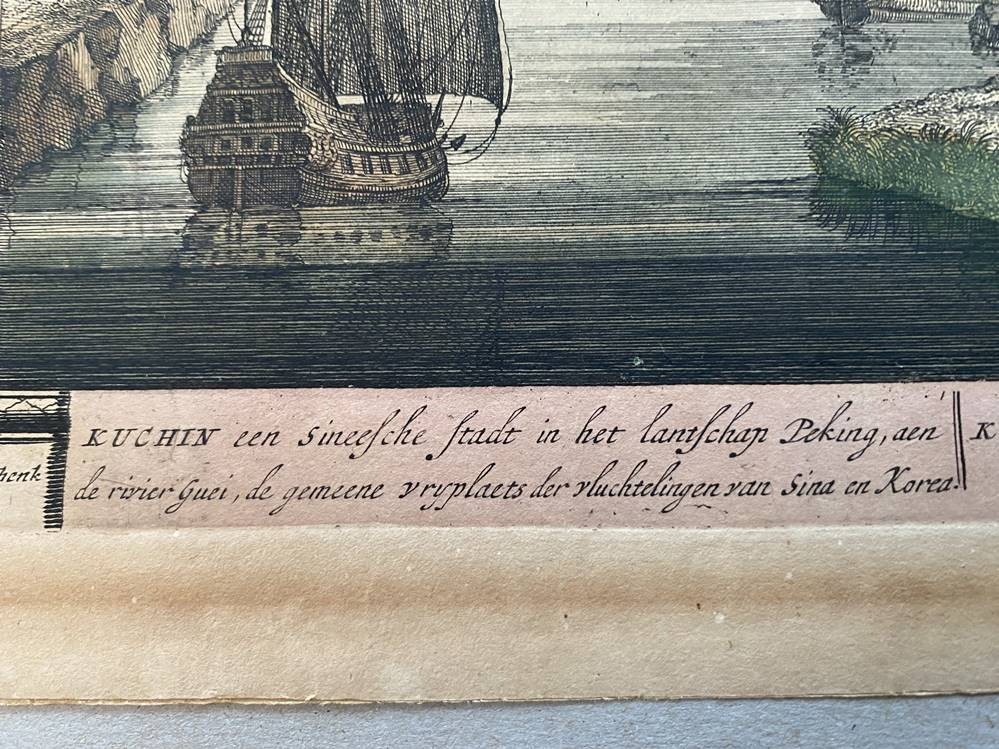 KUCHIN een Sineesche stadt in het lantschap Peking, aen
de rivier Guei, de gemeene vryplaets der vluchtelingen van Sina en Korea.
henk
K